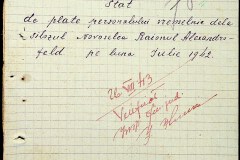 Stat
de plata personalului vremelnic dela
silozul Novoselca Raionul Alexandr-
feld pe luna Iulie 1942.
26 VIII 43
Verificat